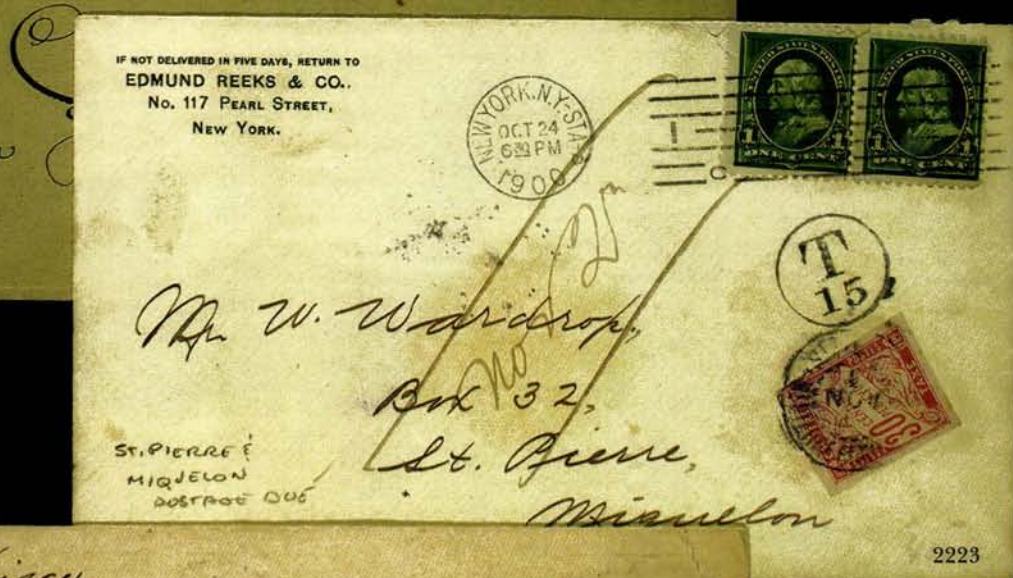 IF NOT DELIVERED IN FIVE DAYS, RETURN TO
EDMUND REEKS & CO..
No. 117 PEARL STREET,
NEW YORK.
NEW YORK. N.Y-STA
OCT 24
6 PM
1900
1 ONE CENT 1
1 ONE CENT 1
T
15
30
NOV
No
Mr W. Wardrop,
Box 32,
St. Pierre,
Miquelon
ST. PIERRE &
MIQUELON
POSTAGE DUE
2223